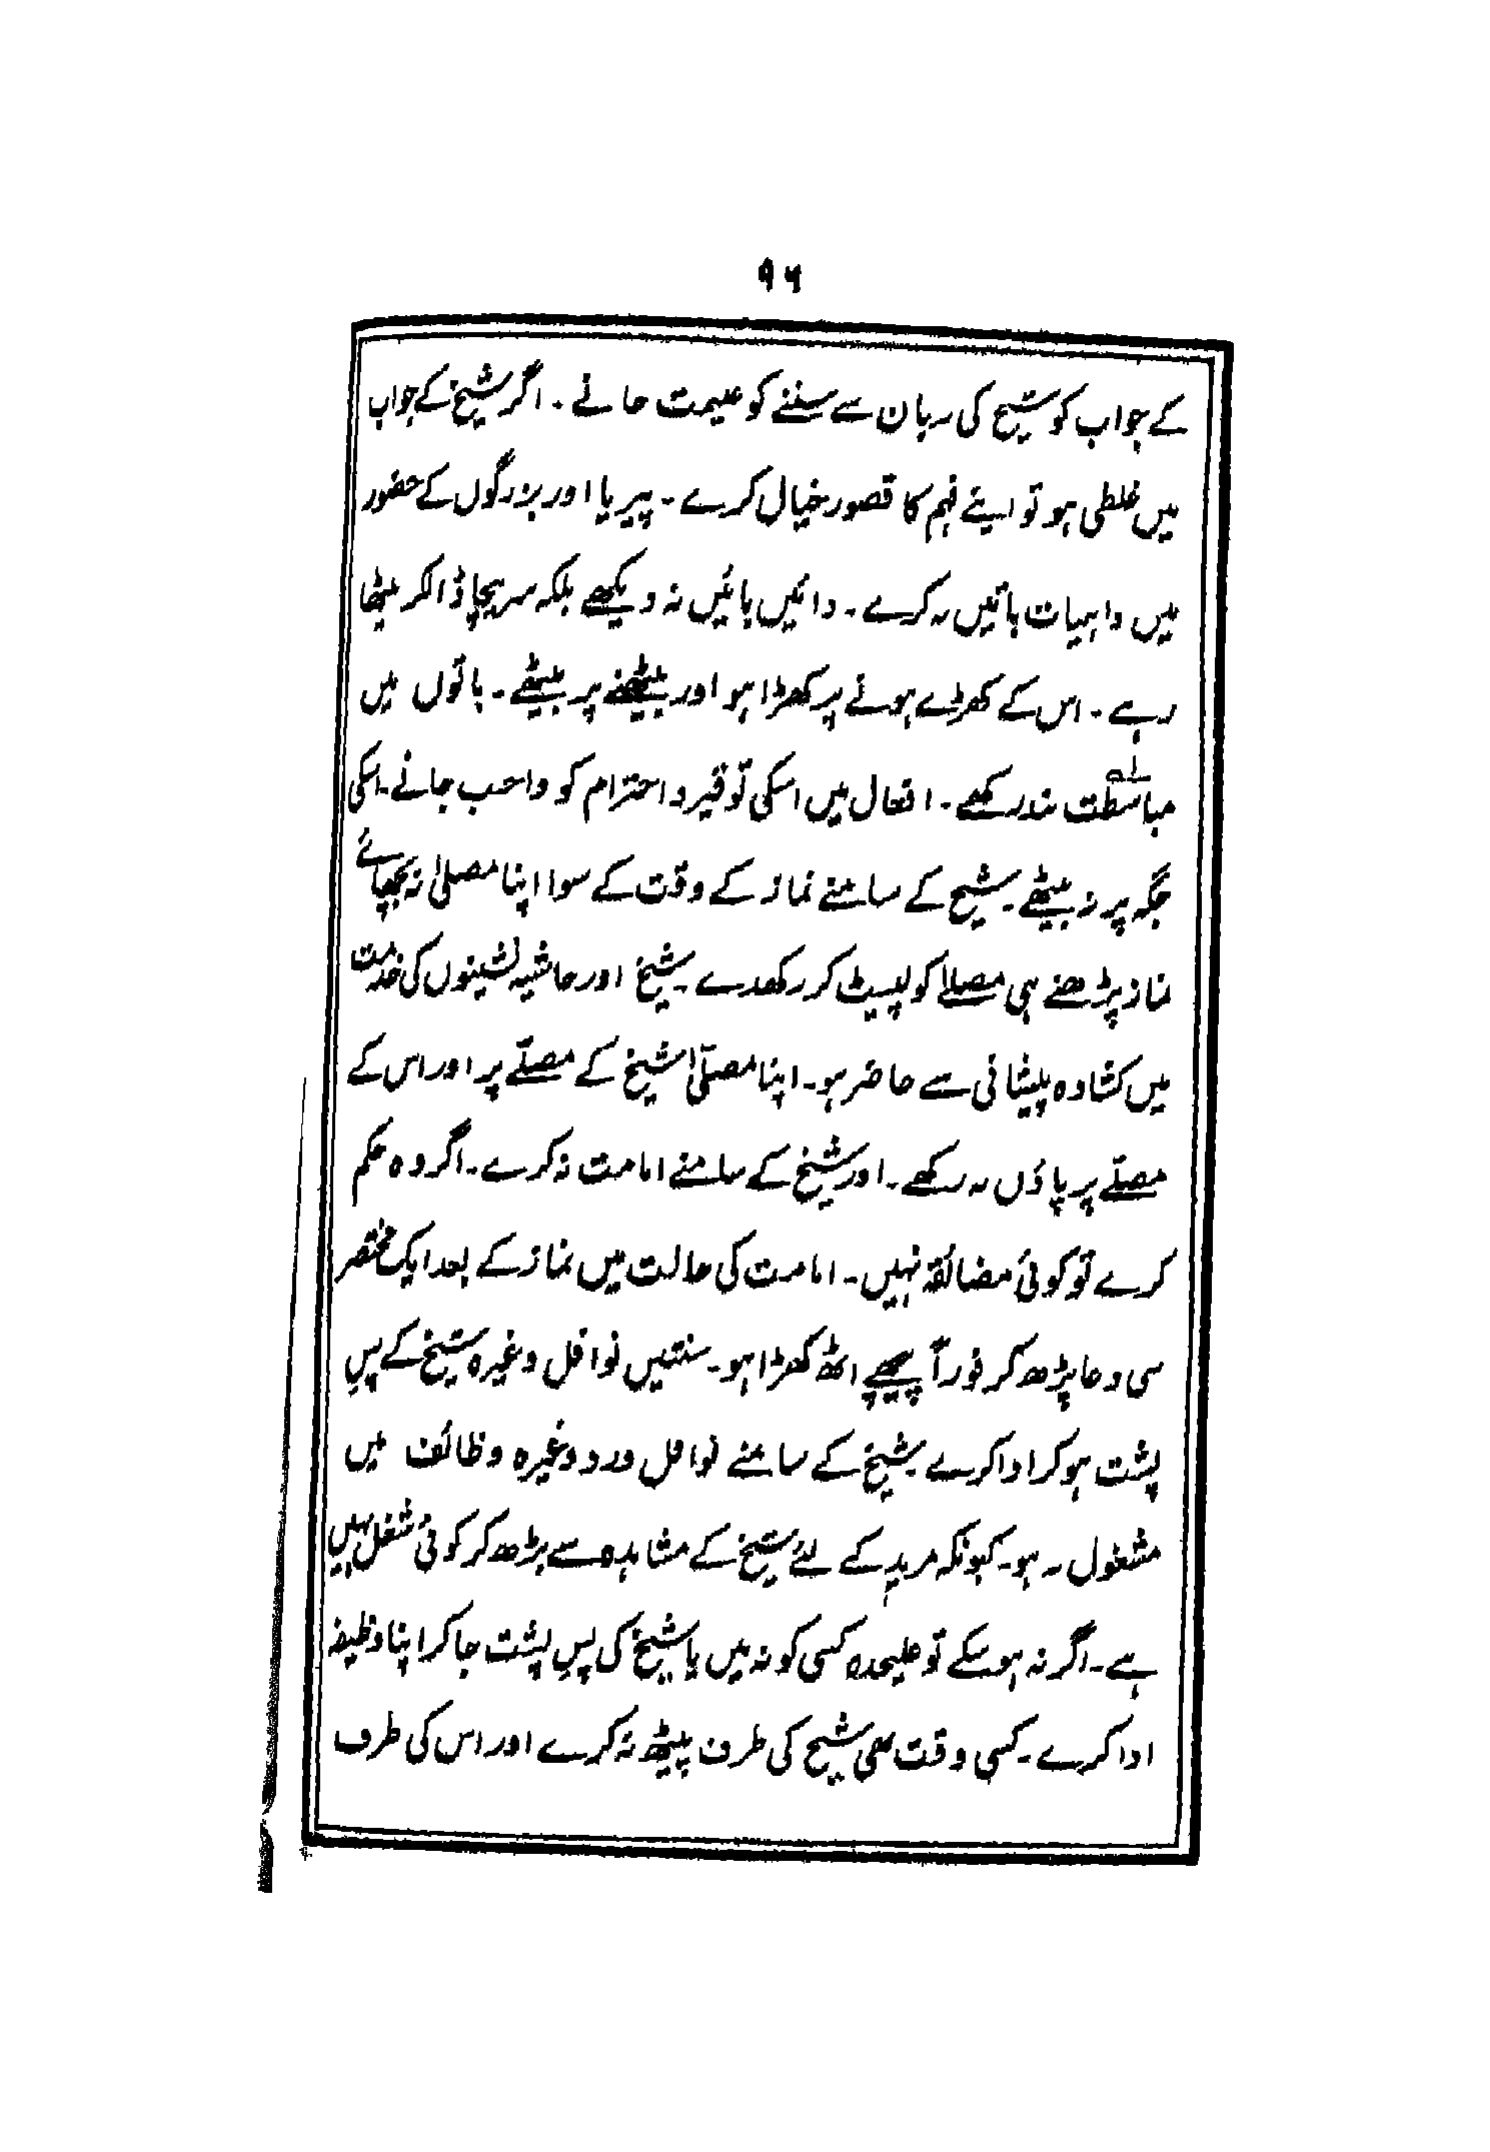 ۹۶
کے جواب کو شیخ کی زبان سے سننے کو غنیمت جانے ۔ اگر شیخ کے جواب
میں غلطی ہو تو اپنے فہم کا قصور خیال کرے ۔ پیر یا اور بزرگوں کے حضور
میں واہیات باتیں نہ کرے ۔ دائیں بائیں نہ دیکھے بلکہ سر نیچا ڈالکر بیٹھا
رہے ۔ اس کے کھڑے ہونے پر کھڑا ہو اور بیٹھنے پر بیٹھے ۔ باتوں میں
مباسطت بند رکھے ۔ افعال میں اسکی توقیر و احترام کو واجب جانے ۔ اسکی
جگہ پر نہ بیٹھے ۔ شیخ کے سامنے نماز کے وقت کے سوا اپنا مصلیٰ نہ بچھائے
نماز پڑھتے ہی مصلا کو لپیٹ کر رکھدے ۔ شیخ اور حاشیہ نشینوں کی خدمت
میں کشادہ پیشانی سے حاضر ہو ۔ اپنا مصلّیٰ شیخ کے مصلّے پر اور اس کے
مصلّے پر پاؤں نہ رکھے ۔ اور شیخ کے سامنے امامت نہ کرے ۔ اگر وہ حکم
کرے تو کوئی مضائقہ نہیں ۔ امامت کی حالت میں نماز کے بعد ایک مختصر
سی دعا پڑھ کر فوراً پیچھے اٹھ کھڑا ہو ۔ سنتیں نوافل وغیرہ شیخ کے پسِ
پشت ہو کر ادا کرے ۔ شیخ کے سامنے نوافل ورد وغیرہ وظائف میں
مشغول نہ ہو ۔ کیونکہ مرید کے لئے شیخ کے مشاہدہ سے بڑھ کر کوئی شغل نہیں
ہے ۔ اگر نہ ہو سکے تو علیحدہ کسی کونہ میں یا شیخ کی پسِ پشت جا کر اپنا وظیفہ
ادا کرے ۔ کسی وقت بھی شیخ کی طرف پیٹھ نہ کرے اور اس کی طرف